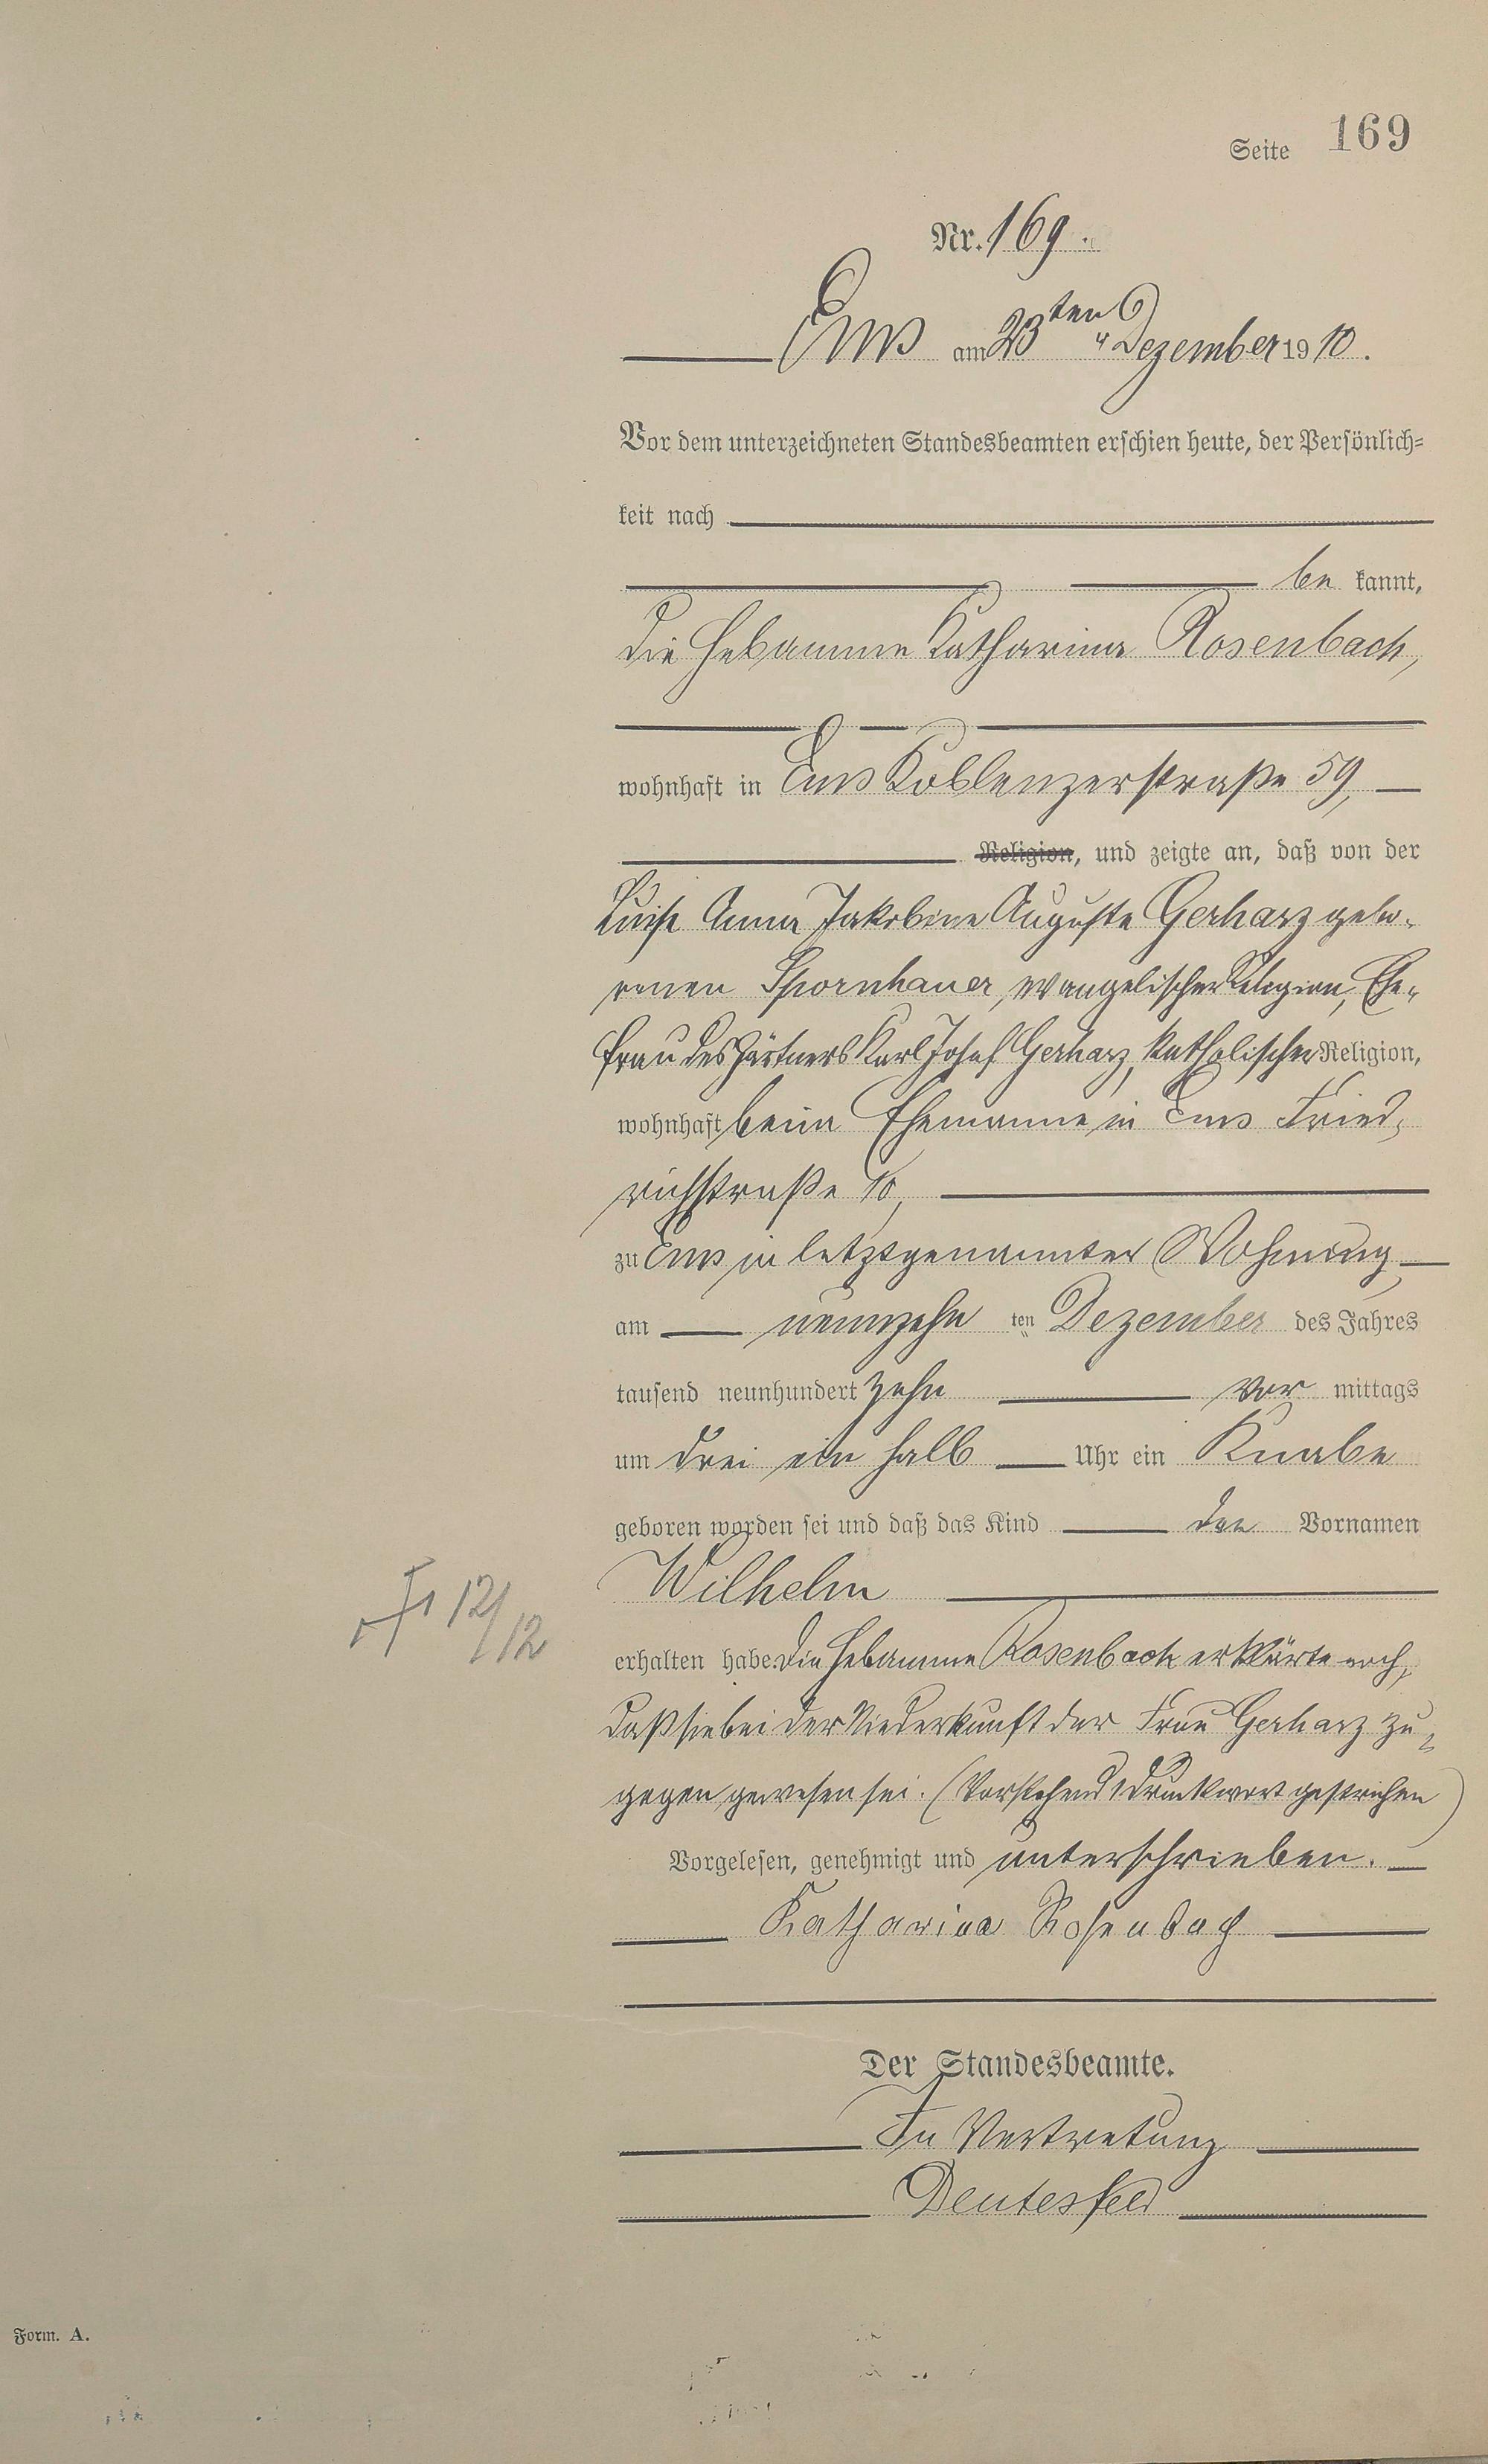 Seite 169
Nr. 169.
Ems am 23ten Dezember 1910.
Vor dem unterzeichneten Standesbeamten erschien heute, der Persönlich-
keit nach
be kannt,
die Hebamme Katharina Rosenbach,
wohnhaft in Ems Koblenzerstraße 59,
Religion, und zeigte an, daß von der
Luise Anna Jakobine Auguste Gerharz gebo-
renen Spornhauer, evangelischer Religion, Ehe-
frau des Gärtners Karl Josef Gerharz, katholischer Religion,
wohnhaft beim Ehemanne in Ems Fried-
richstraße 10,
zu Ems in letztgenannter Wohnung,
am neunzehn ten Dezember des Jahres
tausend neunhundert zehn vor mittags
um drei ein halb Uhr ein Knabe
geboren worden sei und daß das Kind den Vornamen
Wilhelm
12/12
erhalten habe. Die Hebamme Rosenbach erklärte noch,
daß sie bei der Niederkunft der Frau Gerharz zu-
gegen gewesen sei. (Vorstehend 1 Druckwort gestrichen)
Vorgelesen, genehmigt und unterschrieben.
Katharina Rosenbach
Der Standesbeamte.
In Vertretung
Deutesfeld
Form. A.